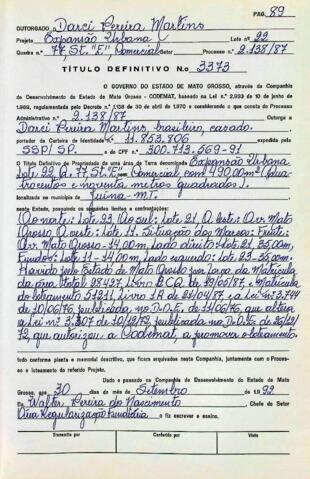 PAG. 89
OUTORGADO Darci Pereira Martins
Projeto Expansão Urbana Lote 22
Quadra n.º 77, St. "E", Comercial Setor Processo n.º 2.138/87
TÍTULO DEFINITIVO N.o 3373
O GOVERNO DO ESTADO DE MATO GROSSO, através da Companhia
de Desenvolvimento do Estado de Mato Grosso - CODEMAT, baseado na Lei n.º 2.933 de 10 de junho de
1969, regulamentada pelo Decreto n.º 1.138 de 30 de abril de 1970 e considerando o que consta do Processo
Administrativo n.º 2.138/87 Outorga a
Darci Pereira Martins, brasileiro, casado.
portador da Carteira de Identidade R.G. n.º 11.853.806 expedida por
SSP/SP e do CPF n.º 300.713.569-91
O Título Definitivo de Propriedade de uma área de Terra denominada Expansão Urbana
Lote 22, Q. 77, St. "E", Comercial com 490,00m² (Qua-
trocentos e noventa metros quadrados).
localizada no município de Juína-MT.
neste Estado, possuindo os seguintes limites e confrontações:
(Ao norte: Lote 23, Ao sul: Lote 21, A leste: Av. Mato
Grosso, A oeste: Lote 11. Situação dos Marcos: Frente:
Av. Mato Grosso-14,00m, Lado direito: Lote 21, 35,00m,
Fundos: Lote 11-14,00m, Lado esquerdo: Lote 23-35,00m.
Havido pelo Estado de Mato Grosso por força da Matrícula
da área total 28427, Livro
do loteamento 51211 Livro 1A de 21/04/87 e a Lei nº 3.744
de 10/06/76, publicada no D.O.E. de 11/06/76, que altera
a Lei nº 3.307 de 10/12/72 publicada no D.O.E. de 26/12/
72 que autorizou a Codemat, a promover o loteamento.
tudo conforme planta e memorial descritivo, que ficam arquivados nesta Companhia, juntamente com o Proces-
so e loteamento do referido Projeto.
Dado e passado na Companhia de Desenvolvimento do Estado de Mato
Grosso, aos 30 dias do mês de Setembro de 19 92
Eu Walter Pereira do Nascimento Chefe do Setor
Div. Regularização Fundiária o fiz escrever e assino.
Transmite por Conferido por Visto